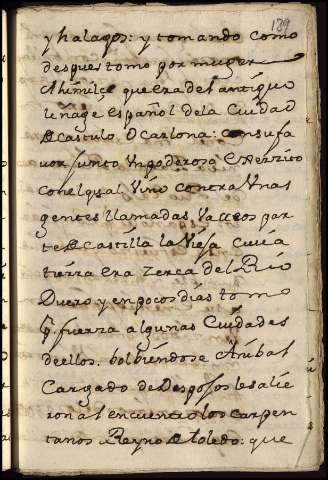 189
y halagos: y tomando como
despues tomo por muger
Ahimilçe que era del antiguo
linage español de la Ciudad
de Castulo o Carlona: con su fa
uor junto Un poderoso Exerzito
con el qual Vino contra Unas
gentes llamadas Vaceos par
te de Castilla la Vieja cuia
tierra era zerca del Rio
Duero y en pocos dias tomo
pr. fuerza algunas Ciudades
de ellos. bolbiendose Anibal
Cargado de Despojos le salie
ron al encuentro los Carpen
tanos Reyno de toledo: que